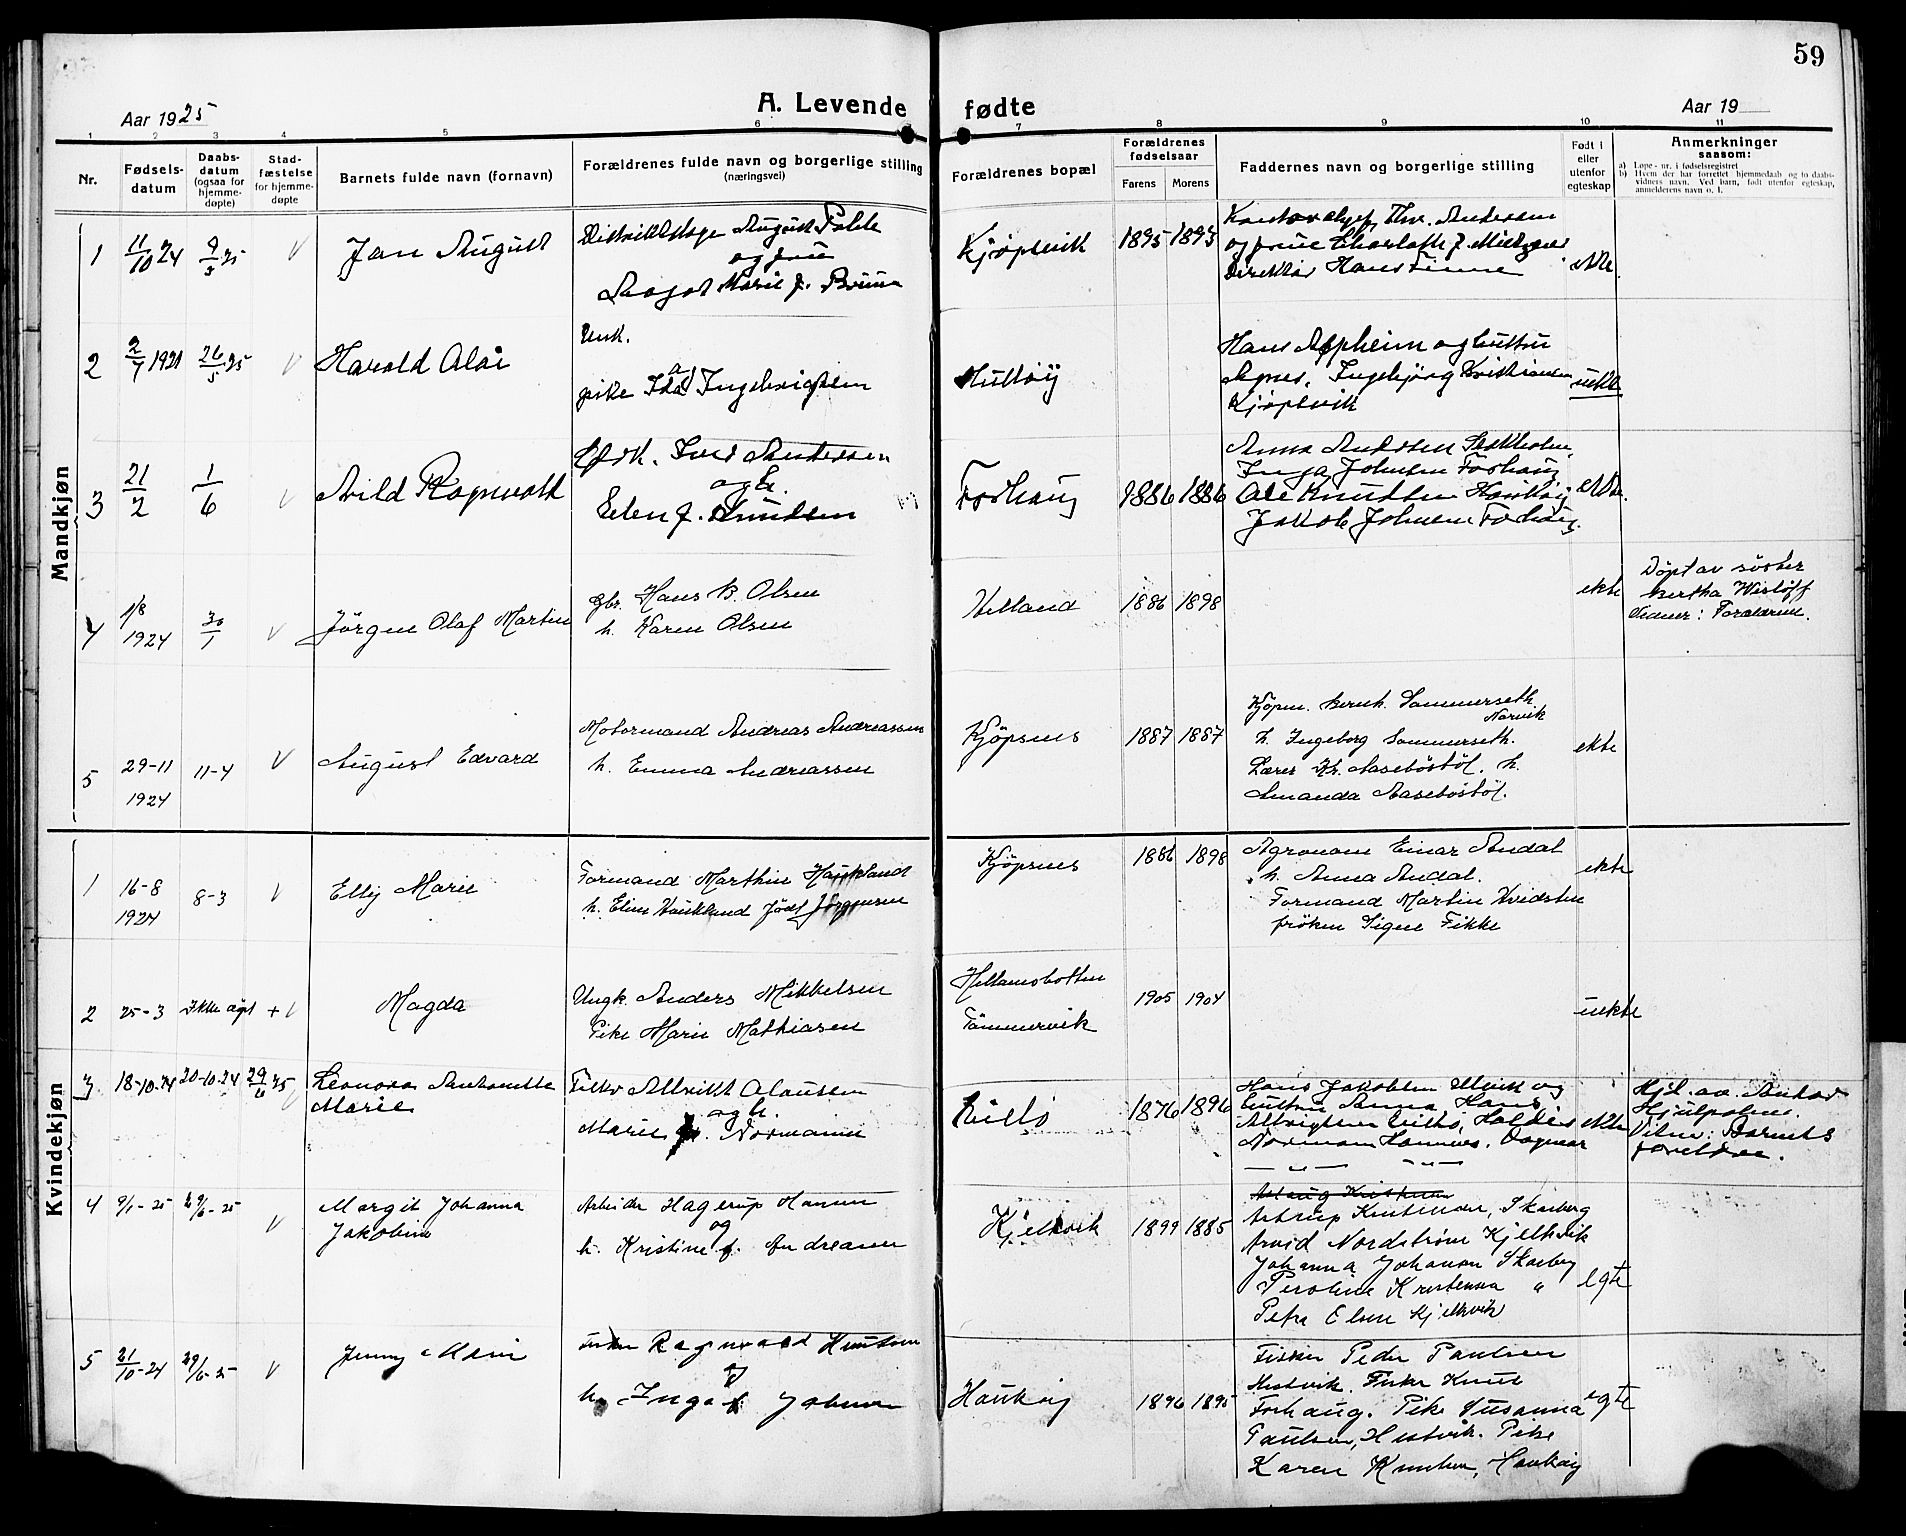 59
Aar 1925
A. Levende fødte
Aar 19
1 2 3 4 5 6 7 8 9 10 11
Nr.
Fødsels-
datum
Daabs-
datum
(ogsaa for
hjemme-
døpte)
Stad-
fæstelse
for hjemme-
døpte
Barnets fulde navn (fornavn)
Forældrenes fulde navn og borgerlige stilling
(næringsvei)
Forældrenes bopæl
Forældrenes
fødselsaar
Farens Morens
Faddernes navn og borgerlige stilling
Født i
eller
utenfor
egteskap
Anmerkninger
saasom:
a) Løpe-nr. i fødselsregistret
b) Hvem der har forrettet hjemmedaab og to daabs-
vidners navn. Ved barn, født utenfor egteskap,
anmelderens navn o. l.
Mandkjøn
1 11/10 24 V Jan August
August
og frue
Marie f.
Kjøpsvik 1895 1893
og frue
Direktør Hans
ekte
2 26/5 25 V Harald
Unk.
pike Ida Ingebrigtsen
Hans og hustru
Agnes, Ingebjørg Kristiansen
Kjøpsvik
uekte
3 21/2 1/6 V Arild Ragnvald
Iver Andersen
og h.
Elen f. Knutsen
Forhaug 1886 1886
Anna
Inga Johnsen Forhaug
Ole Knutsen
Jakob Johnsen Forhaug
ekte
4 1/8 1924 30/1 V Jørgen Olaf Martin
Gbr. Hans B. Olsen
h. Karen Olsen
Helland 1886 1898
ekte
Døpt av søster
Bertha Wisløff
Vidner: Forældrene.
5 29-11 1924 11-4 V August Edvard
Motormand Andreas Andreassen
h. Emma Andreassen
Kjøpsnes 1887 1887
Kjøpm. Bernh. Sommerseth
Narvik
h. Ingeborg Sommerseth.
Lærer Kr. Aasebøstøl. h.
Amanda Aasebøstøl.
ekte
Kvindekjøn
1 16-8 1924 8-3 V Elly Marie
Formand Marthin Haukland
h. Eline Haukland født Jørgensen
Kjøpsnes 1886 1898
Agronom Einar Andal
h. Anna Andal.
Formand Martin Hvidsten
frøken Signe Fikke
ekte
2 25-3 Ikke døpt + V Magda
Ungk. Anders Mikkelsen
Pike Marie Mathiasen
Hellemobotten
Tømmervik
1905 1904
uekte
3 18-10-24 20-10-24 29/6 25 V Leonora Antonette
Marie
Albrikt Olaussen
og h.
Marie Normann
1876 1896
Hans Jakobsen og
hustru Anna, Hans
Albrigtsen
Norman Dagmar
— „ — „ —
ekte
Hjd. av
Vitne: Barnets
foreldre.
4 9/1-25 29/6-25 V Margit Johanna
Jakobine
Arbeider Hagerup Hansen
og
h. Kristine f. Andreassen
Kjelkvik 1899 1885
Astrup Kristensen, Skarberg
Arvid Nordstrøm Kjelkvik
Johanna Johansen Skarberg
Kristensen „
Petra Elsen Kjelkvik
egte
5 21/10-24 29/6-25 V Jenny Marie
Fisker Ragnvald Knutsen
og
h. Inga f. Johnsen
Haukøy 1896 1895
Fisker Peder Paulsen
Hestvik. Fisker Knut
Forhaug. Pike Susanna
Paulsen, Hestvik. Pike
Karen Knutsen, Haukøy
egte